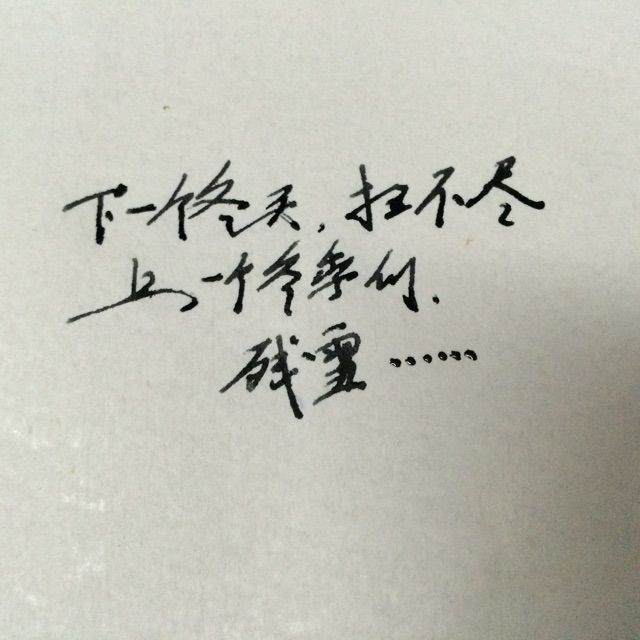 下一个冬天，扫不尽
上一个冬季的
残雪……